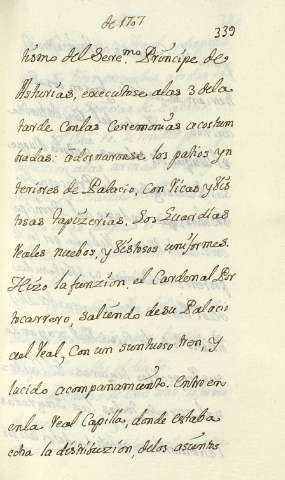 de 1707
339
tismo del Sere.mo Principe de
Asturias, executose alas 3 dela
tarde conlas Ceremonias acostum
bradas: adornaronse los patios yn
teriores de Palacio, con ricas y vis
tosas tapizerias. Los Guardias
reales nuebos, y vistosos uniformes.
Hizo la funzion, el Cardenal Por
tocarrero, saliendo de su Palacio
al Real, Con un suntuoso tren, y
lucido acompañamiento. Entro en
enla Real Capilla, donde estaba
echa la distribuzion, delos asuntos